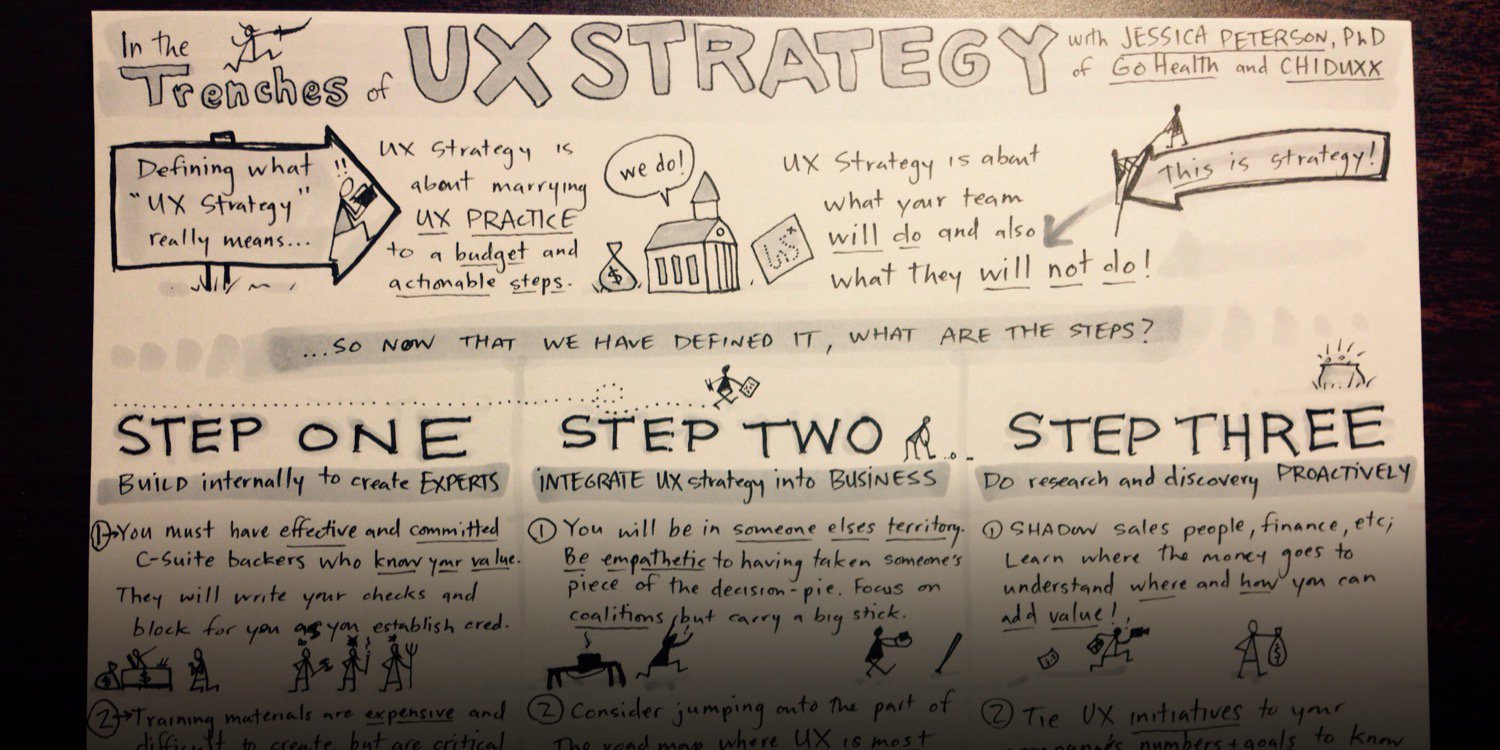 In the
Trenches of
UX STRATEGY
with JESSICA PETERSON, PhD
of GoHealth and CHIDUXX
Defining what
"UX Strategy"
really means...
!!
UX Strategy is
about marrying
UX PRACTICE
to a budget and
actionable steps.
we do!
$
UX Strategy is about
what your team
will do and also
what they will not do!
This is strategy!
...SO NOW THAT WE HAVE DEFINED IT, WHAT ARE THE STEPS?
STEP ONE
BUILD internally to create EXPERTS
1 You must have effective and committed
C-Suite backers who know your value.
They will write your checks and
block for you as you establish cred.
$
2 Training materials are expensive and
difficult to create but are critical
STEP TWO
INTEGRATE UX strategy into BUSINESS
1 You will be in someone elses territory.
Be empathetic to having taken someone's
piece of the decision-pie. Focus on
coalitions, but carry a big stick.
2 Consider jumping onto the part of
The road map where UX is most
STEP THREE
DO research and discovery PROACTIVELY
1 SHADOW sales people, finance, etc;
Learn where the money goes to
understand where and how you can
add value!
$
2 Tie UX initiatives to your
numbers + goals to know